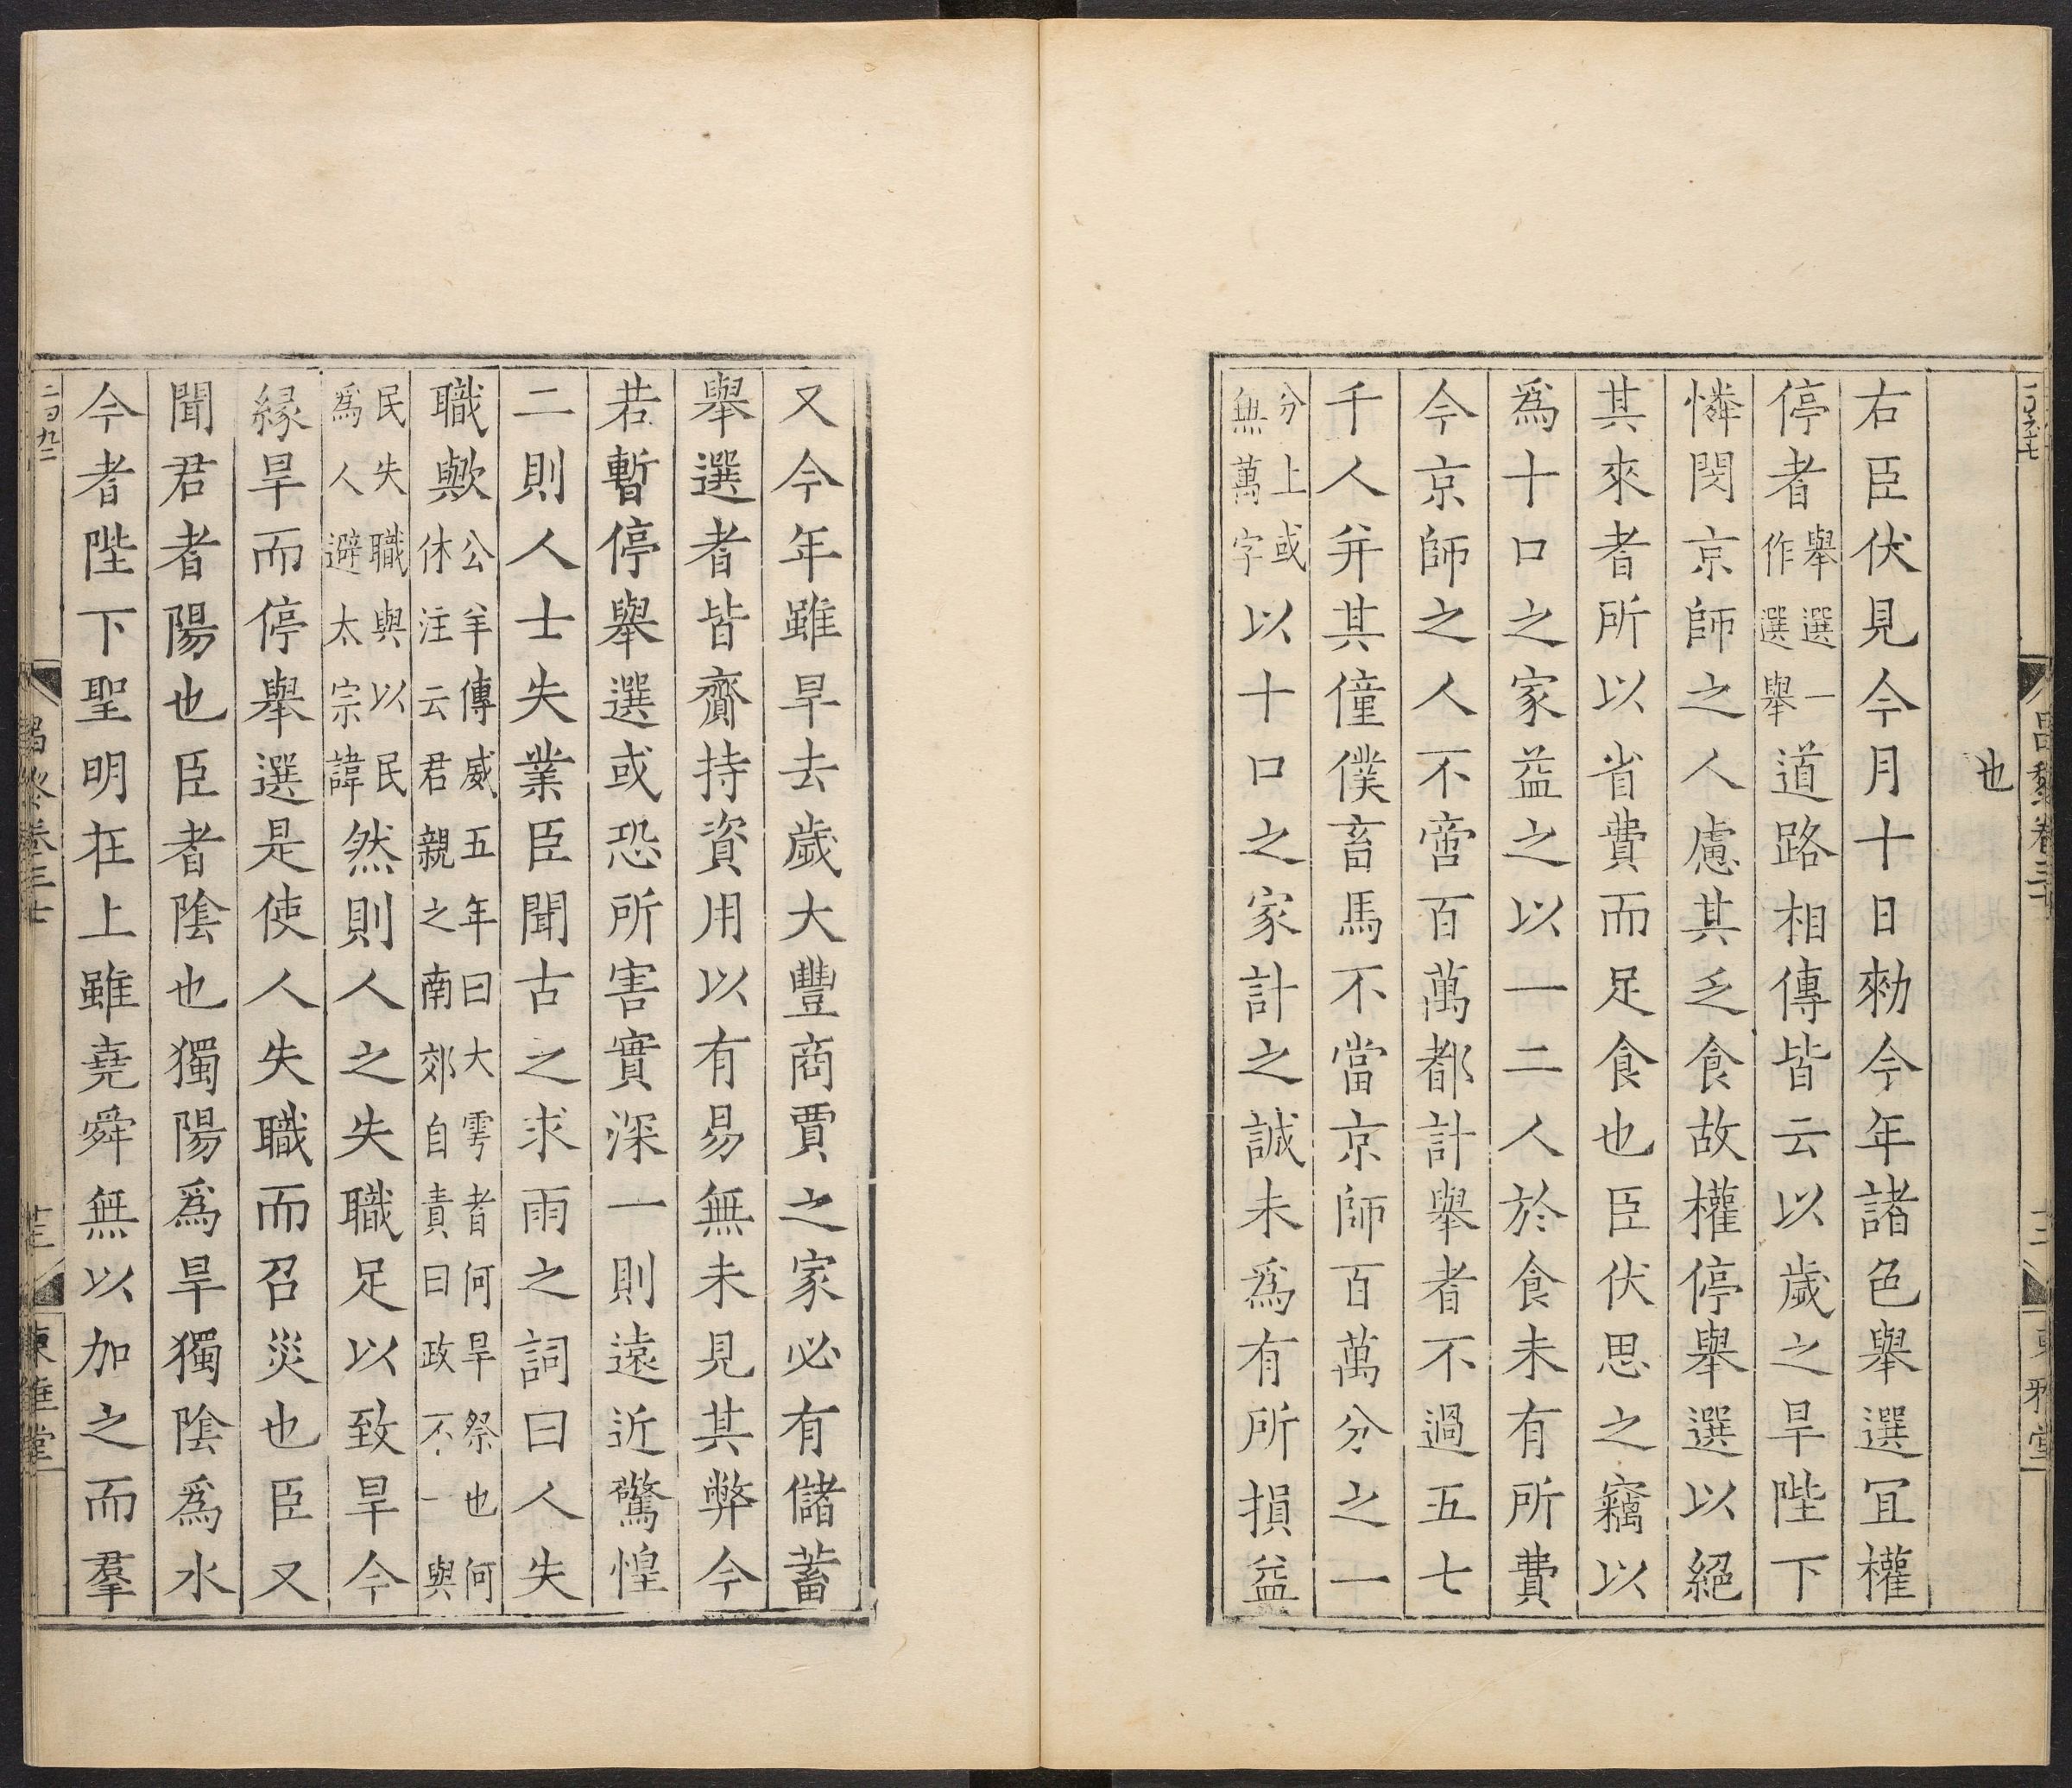 也
右臣伏見今月十日勑今年諸色舉選冝權
停者舉選一作選舉道路相傳皆云以歲之旱陛下
憐閔京師之人慮其乏食故權停舉選以絕
其來者所以省費而足食也臣伏思之竊以
爲十口之家益之以一二人於食未有所費
今京師之人不啻百萬都計舉者不過五七
千人并其僮僕畜馬不當京師百萬分之一
分上或無萬字以十口之家計之誠未爲有所損益
又今年雖旱去歲大豐商賈之家必有儲蓄
舉選者皆齎持資用以有易無未見其弊今
若暫停舉選或恐所害實深一則遠近驚惶
二則人士失業臣聞古之求雨之詞曰人失
職歟公羊傳威五年曰大雩者何旱祭也何休注云君親之南郊自責曰政不一與
民失職與以民爲人避太宗諱然則人之失職足以致旱今
緣旱而停舉選是使人失職而召災也臣又
聞君者陽也臣者陰也獨陽爲旱獨陰爲水
今者陛下聖明在上雖堯舜無以加之而羣